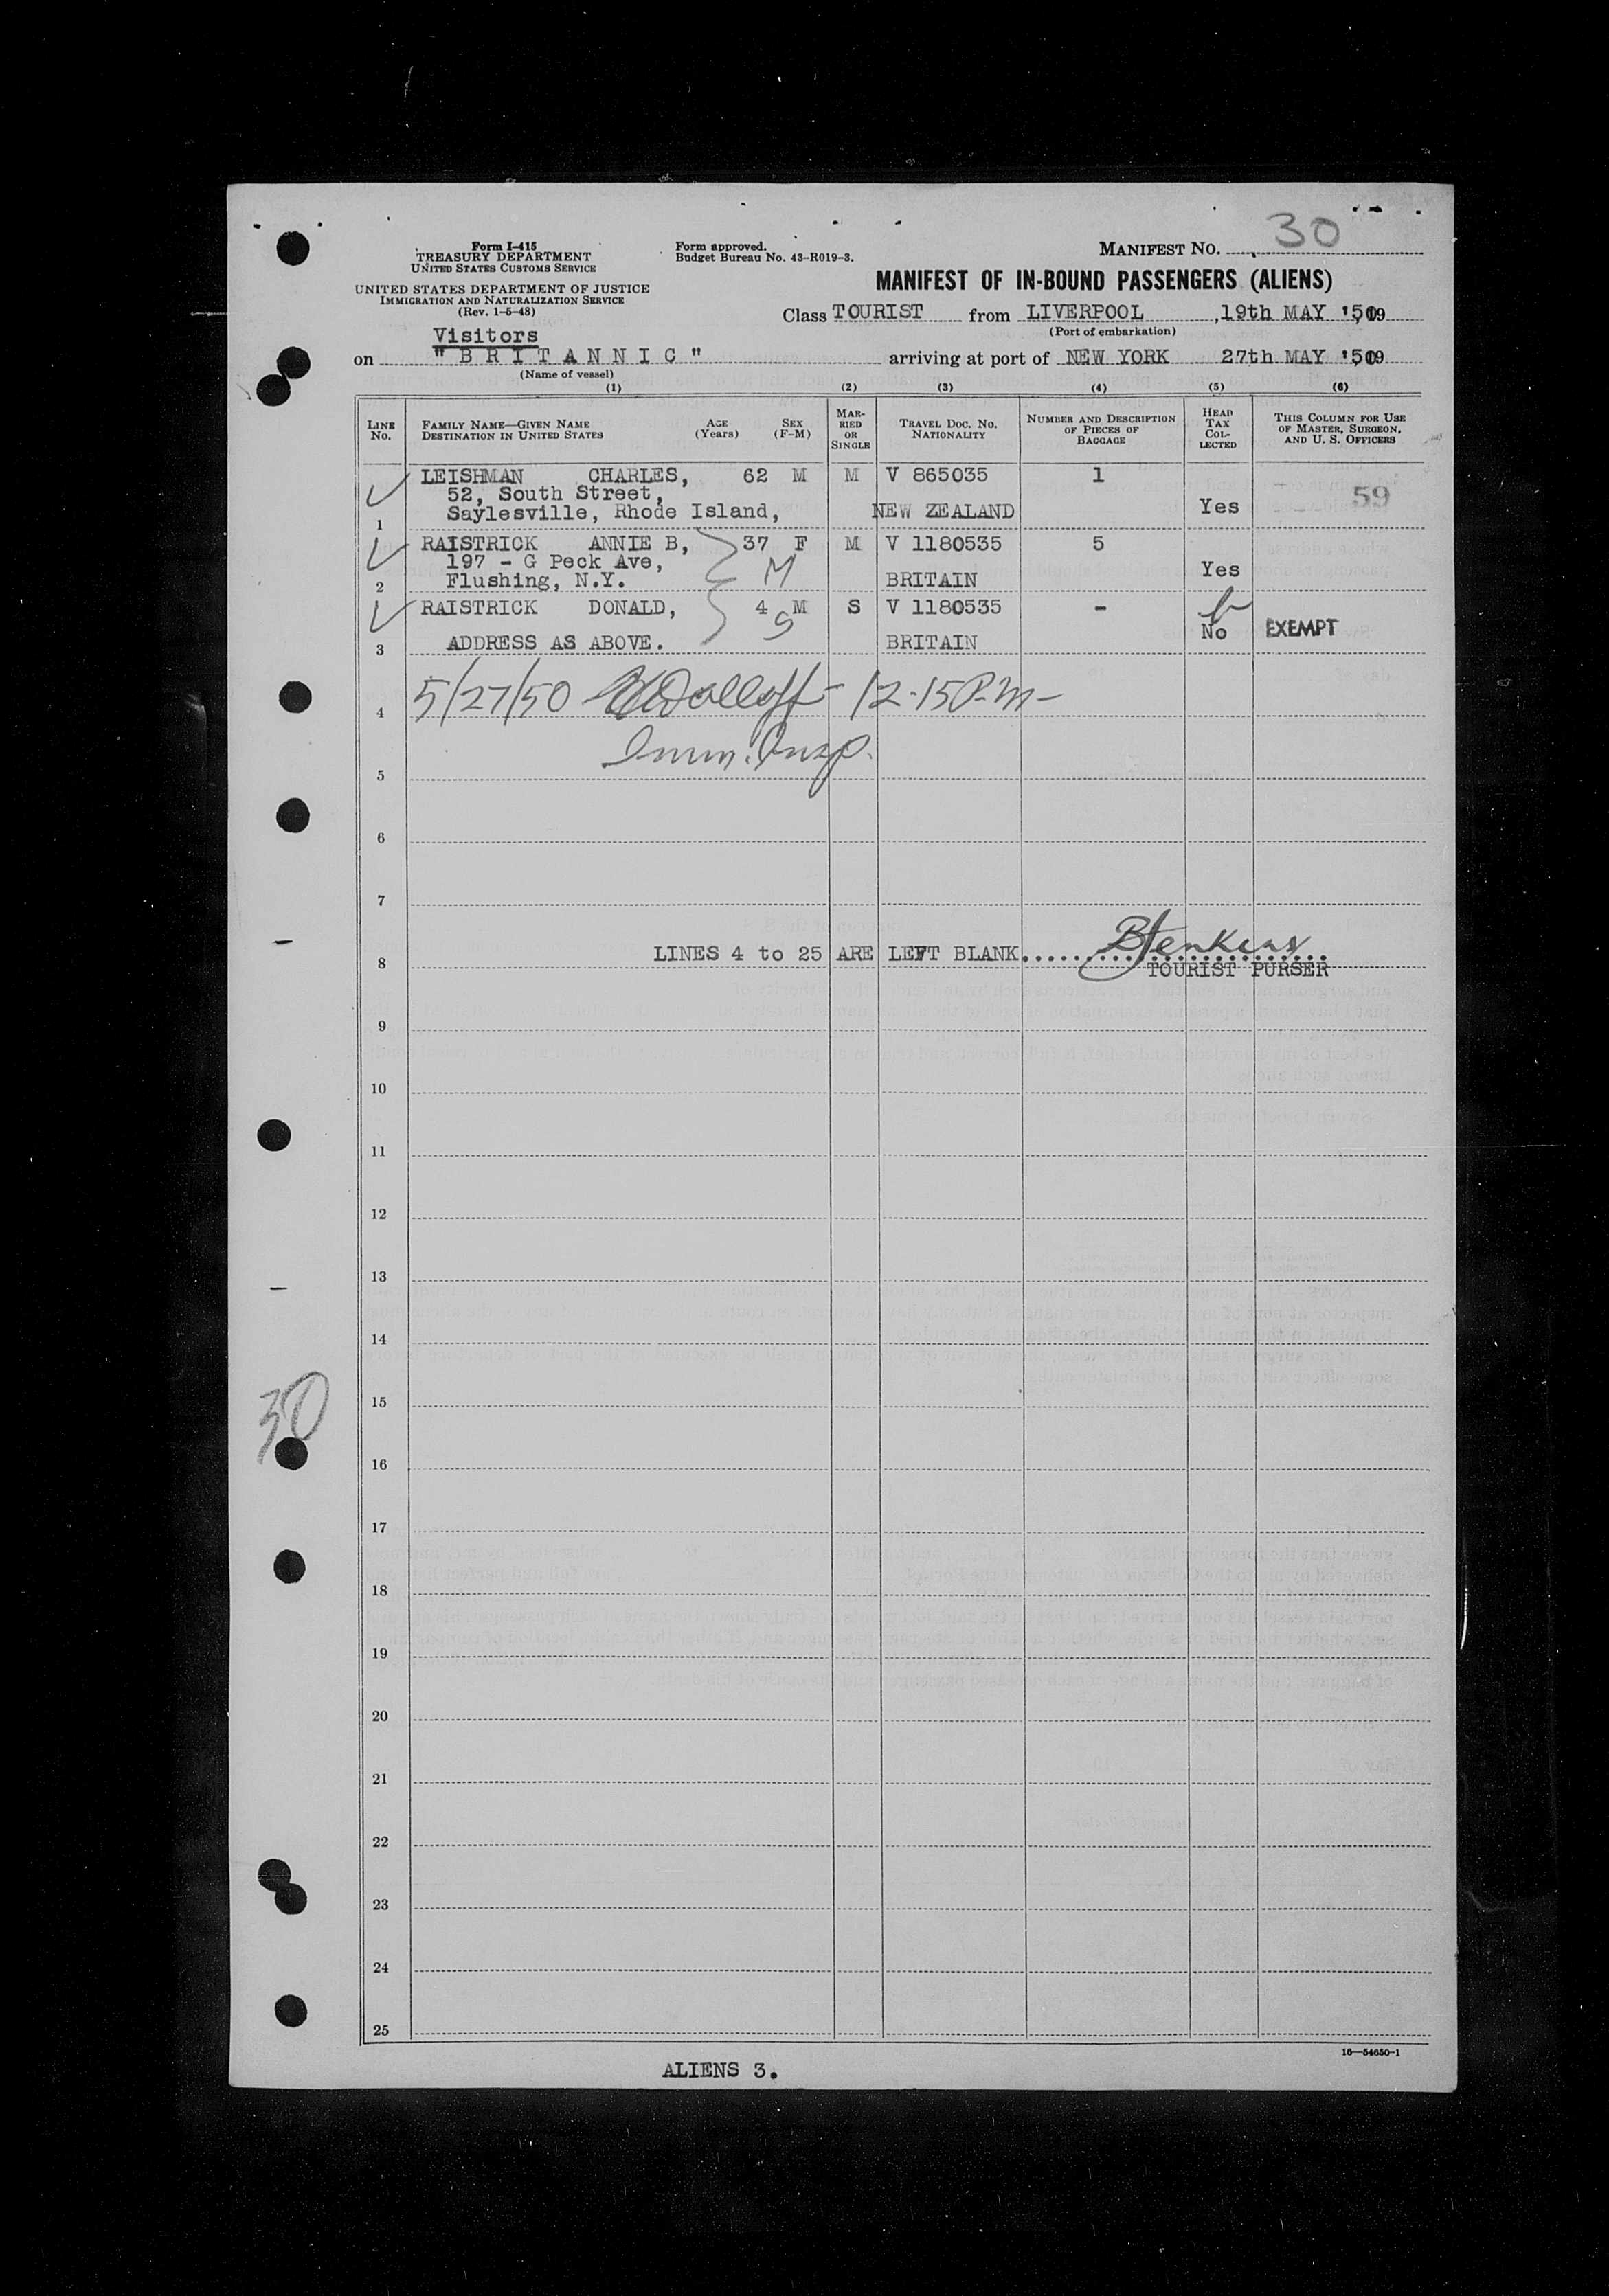 Form I-415
TREASURY DEPARTMENT
UNITED STATES CUSTOMS SERVICE
UNITED STATES DEPARTMENT OF JUSTICE
IMMIGRATION AND NATURALIZATION SERVICE
(Rev. 1-5-48)
Form approved.
Budget Bureau No. 43-R019-3.
MANIFEST NO. 30
MANIFEST OF IN-BOUND PASSENGERS (ALIENS)
Class TOURIST from LIVERPOOL, 19th MAY '50
(Port of embarkation)
Visitors
on "BRITANNIC" arriving at port of NEW YORK 27th MAY '50
(Name of vessel)
(1) (2) (3) (4) (5) (6)
LINE No. FAMILY NAME—GIVEN NAME DESTINATION IN UNITED STATES AGE (Years) SEX (F-M) MARRIED OR SINGLE TRAVEL DOC. NO. NATIONALITY NUMBER AND DESCRIPTION OF PIECES OF BAGGAGE HEAD TAX COLLECTED THIS COLUMN FOR USE OF MASTER, SURGEON, AND U. S. OFFICERS
LEISHMAN CHARLES, 62 M M V 865035 1
52, South Street, 59
1 Saylesville, Rhode Island, NEW ZEALAND Yes
RAISTRICK ANNIE B, 37 F M V 1180535 5
197 - G Peck Ave, M
2 Flushing, N.Y. BRITAIN Yes
RAISTRICK DONALD, 4 M S V 1180535 -
S
3 ADDRESS AS ABOVE. BRITAIN No EXEMPT
4 5/27/50 12.15 P.M-
Imm. Insp.
5
6
7
8 LINES 4 to 25 ARE LEFT BLANK.................... BJenkins
TOURIST PURSER
9
10
11
12
13
14
15
30
16
17
18
19
20
21
22
23
24
25
16—54650-1
ALIENS 3.